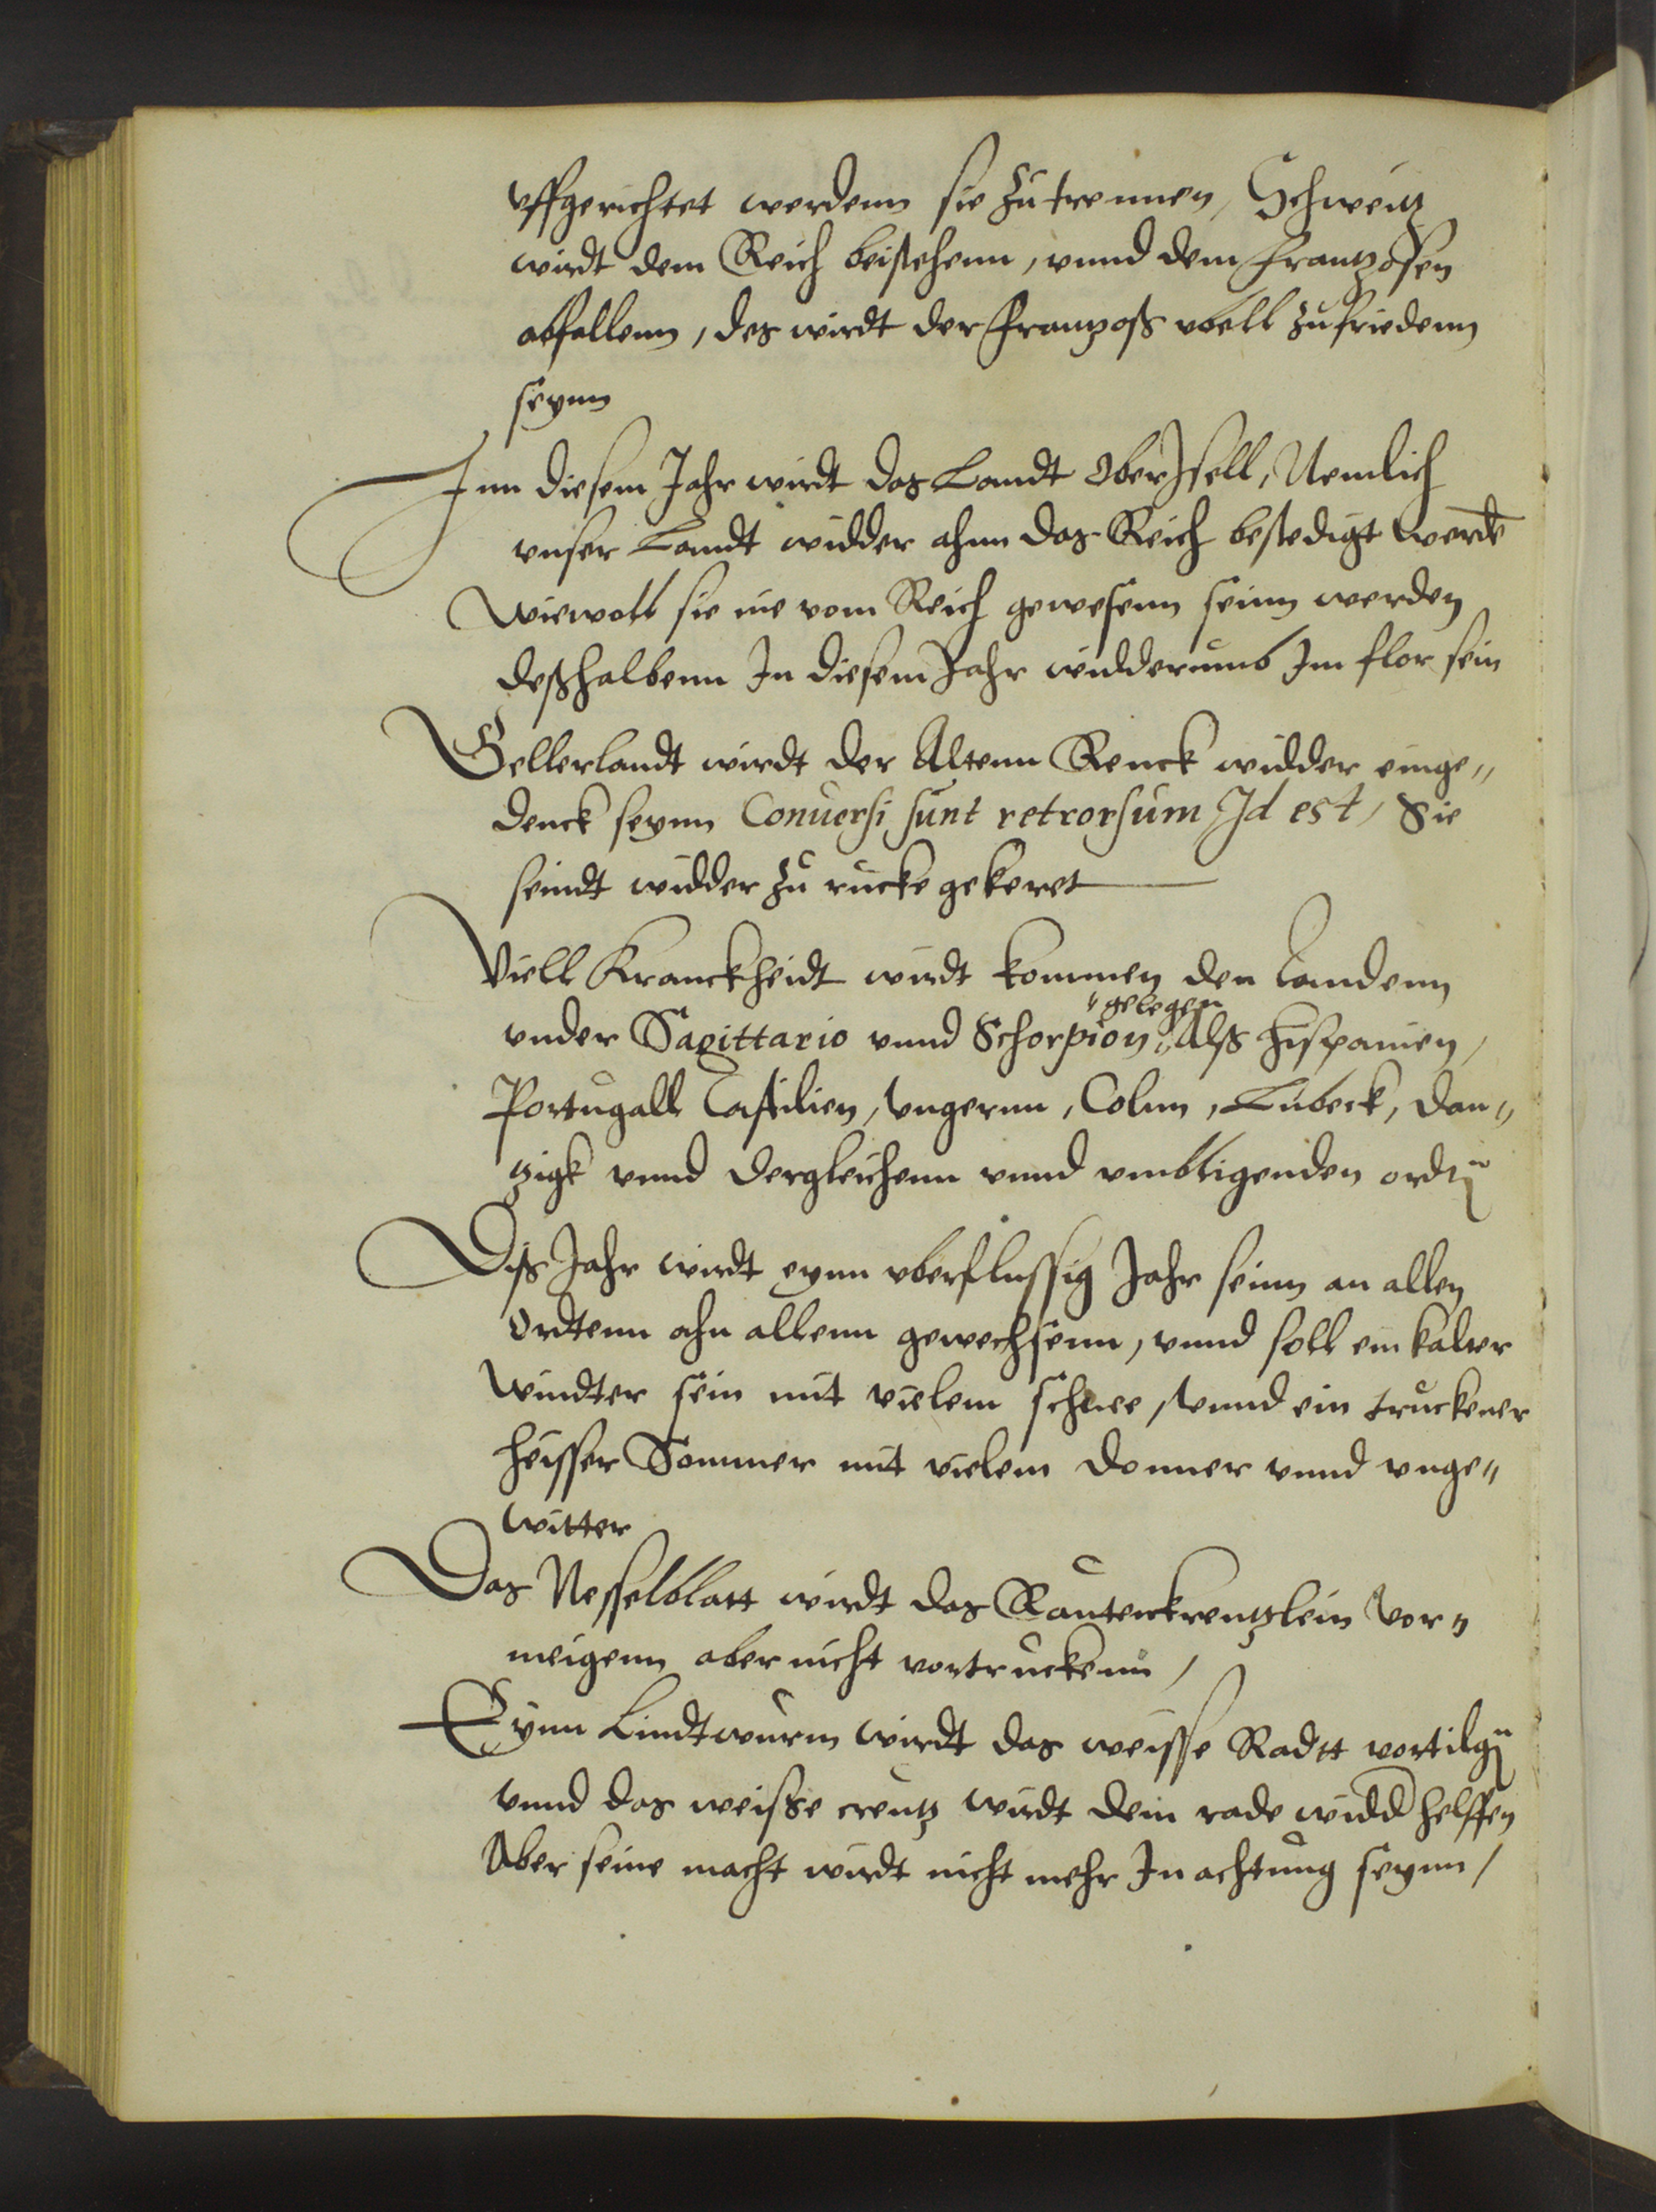 vffgerichtet werdenn sie zu trennen, Schweitz
wirdt dem Reich beistehenn, vnnd dem Frantzosen
abfallenn, des wirdt der Frantzoß vbell zufriedenn
seynn
Inn diesem Jahr wirdt das Landt OberJsell, Nemlich
vnser Landt widder ahnn das Reich bestedigt werdē
Wiewoll sie nie vom Reich gewesenn seinn werden
deßhalbenn In diesem Jahr widderumb Im flor sein
Gellerlandt wirdt der Altenn Renck widder einge„
denck seynn Conuersi sunt retrorsum Id est, Sie
seindt widder zu rucke gekeret
Viell Kranckheidt wirdt kommen den Landenn
„gelegen
vnder Sagittario vnnd Schorpion„ Alß Hispanien,
Portugall Castilien, Vngernn, Colnn, Lubeck, Dan„
tzigk vnnd dergleichenn vnnd vmbligenden ordn̄
Diß Jahr wirdt eynn vberflussig Jahr seinn an allen
Ordtenn ahn allenn gewechsenn, vnnd soll ein kalter
Windter sein mit vielem schnee, Vnnd ein truckener
heisser Sommer mit vielem donner vnnd vnge„
witter
Das Nesselblatt wirdt das Rautenkrentzlein Vor„
neigenn aber nicht vortruckenn,
Eynn Lindtwurm wirdt das weisse Radtt vortilgn̄
Vnnd das weisse creutz wirdt dem rade widd helffen
Aber seine macht wirdt nicht mehr In achtung seynn,